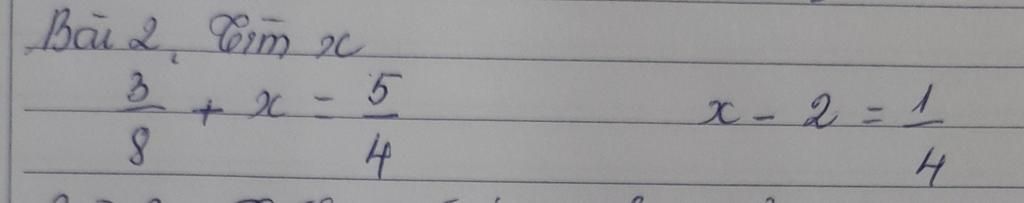 Bài 2. Tìm x
3/8 + x = 5/4    x - 2 = 1/4